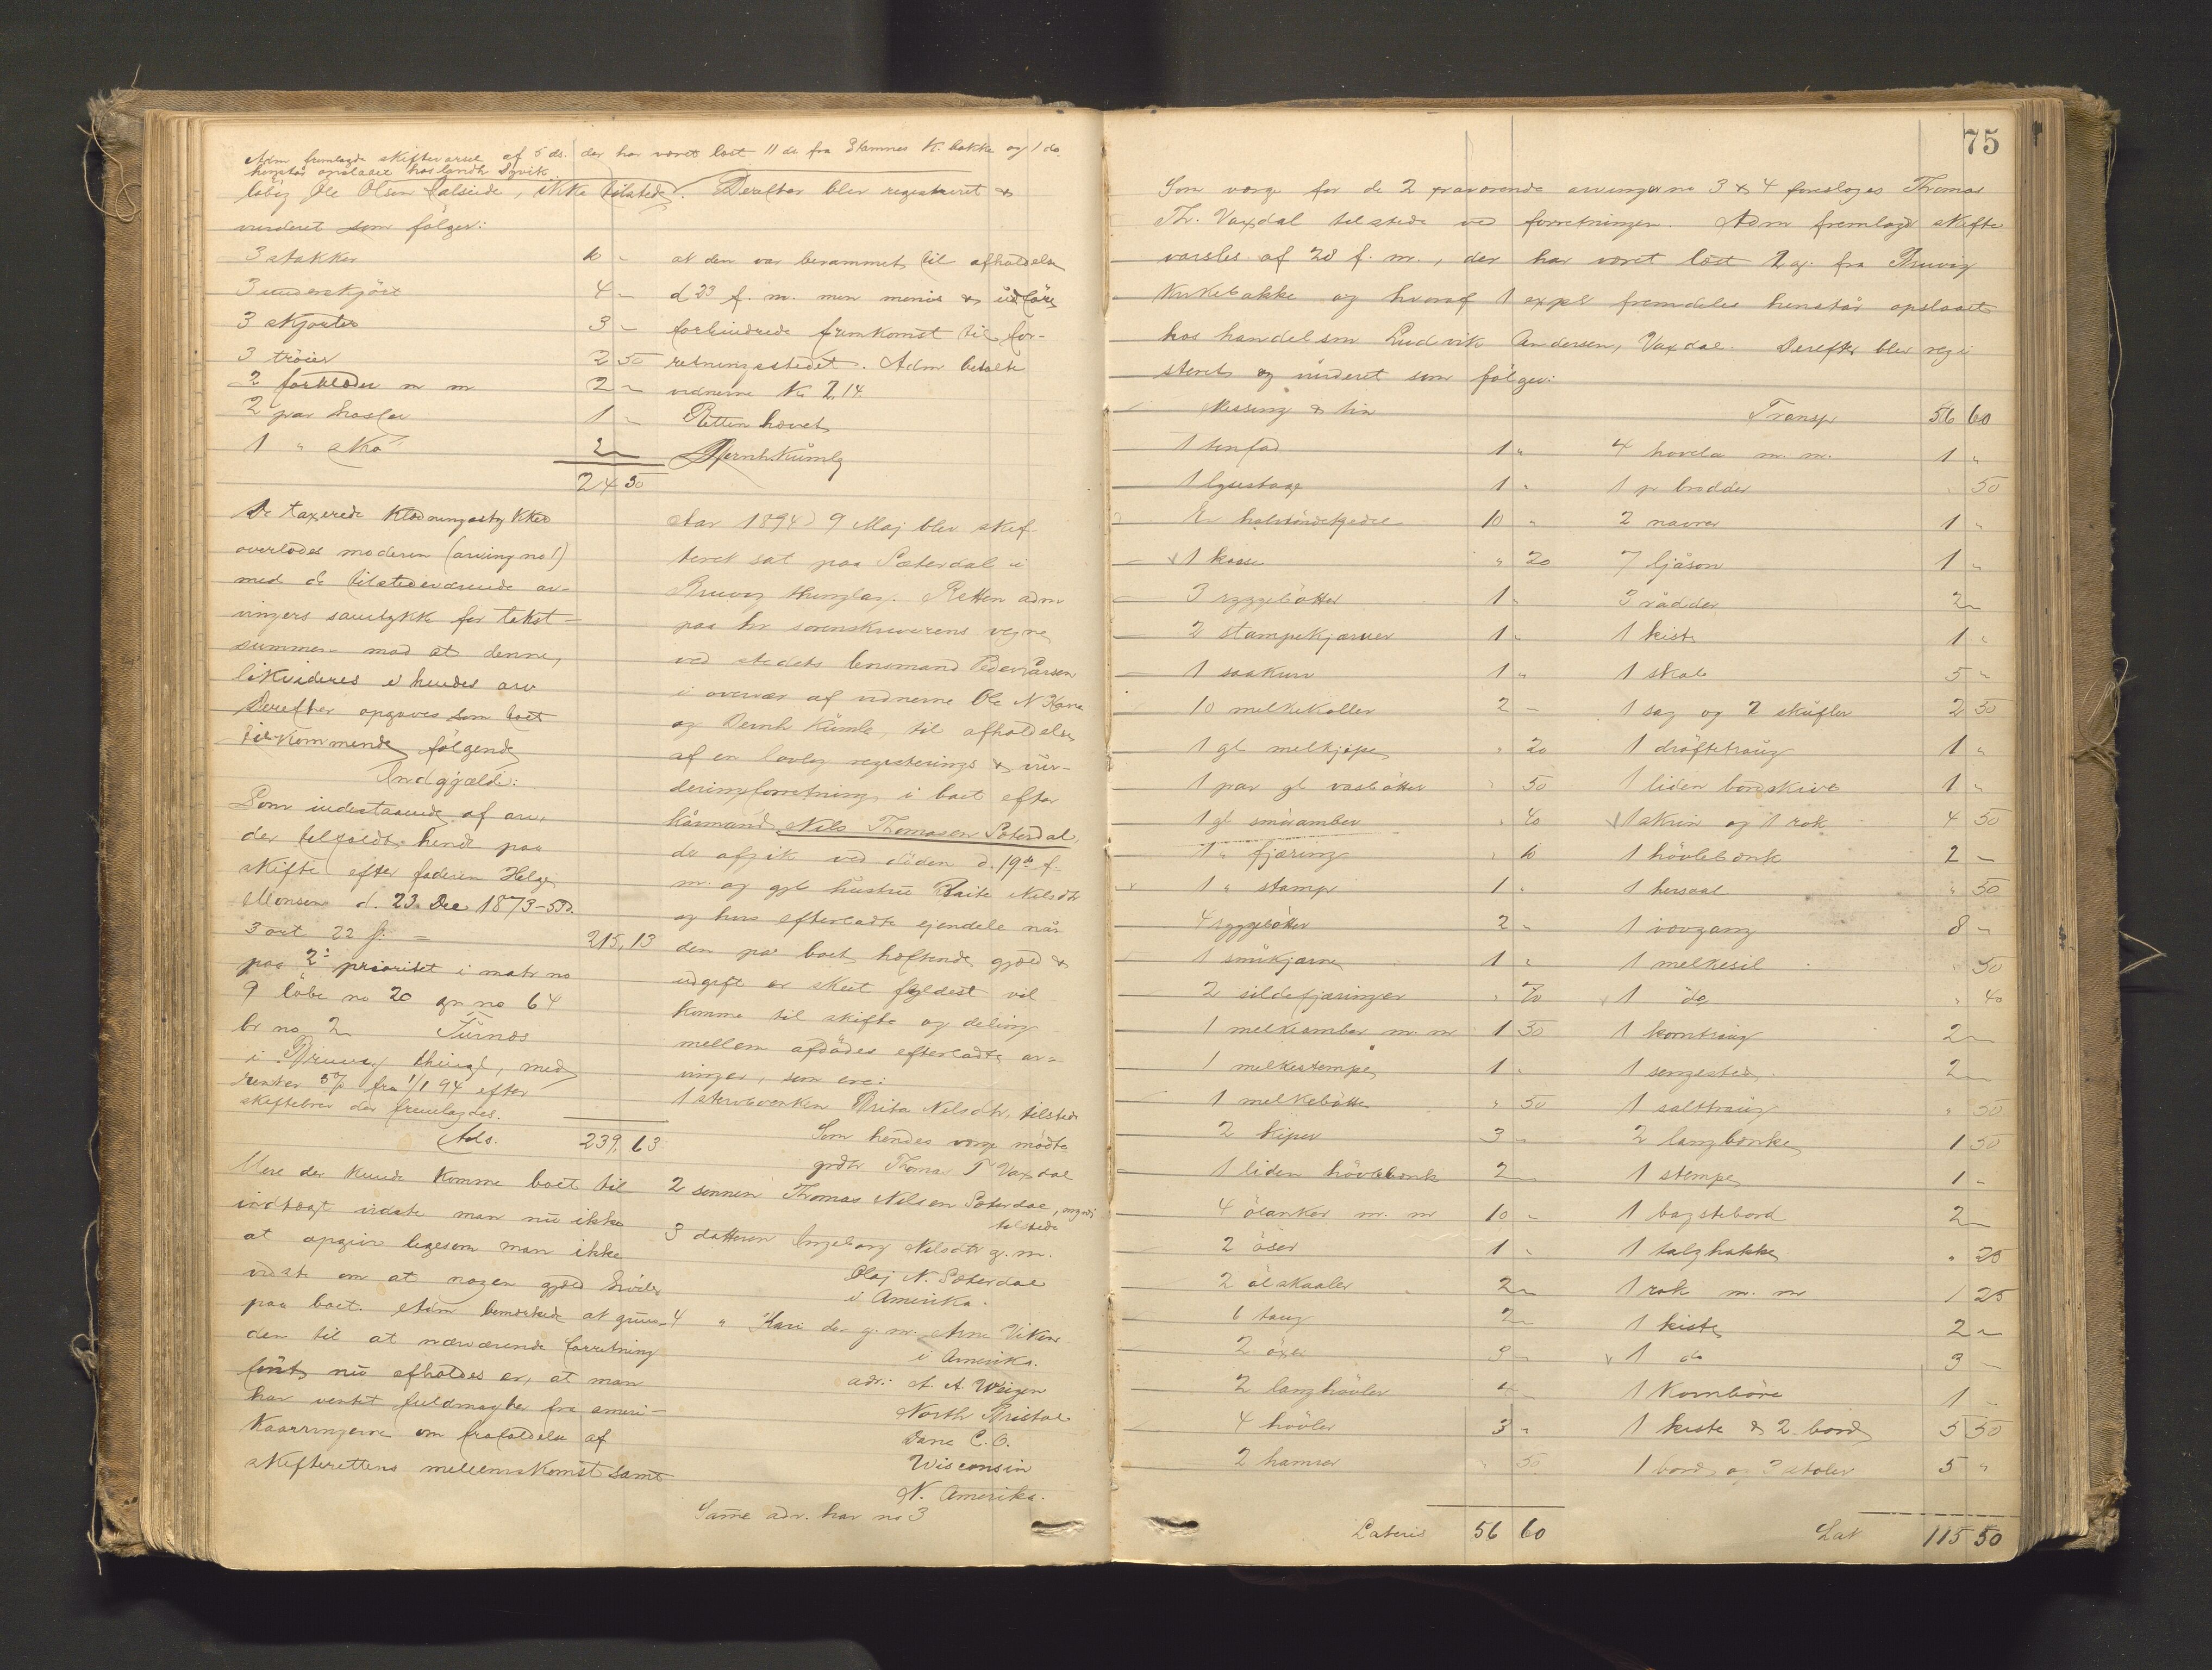 Adm fremlagde skiftevarsel af 5 ds. der har været læst 11 ds fra Stamnes K. bakke og 1 do.
henstår opslaaet hos landh
lövig Ole Olsen Dalseide, ikke tilstede. Derefter blev registreret &
vurderet som fölger:
3 stakker 10 -
3 underskjört 4 -
3 skjorter 3 -
3 tröier 2 50
2 forklæder m m 2 -
2 par hoser 1 -
1 " sko 2 -
24 50
De taxerede klædningsstykker
overlodes moderen (arving no 1)
med de tilstedeværende ar-
vingers samtykke for takst-
summen mod at denne,
likvideres i hendes arv
Derefter opgaves som boet
tilkommende følgende
Indgjæld:
Som indestaaende af arv,
der tilfaldt hende paa
skifte efter faderen Helge
Monsen d. 23 Dec 1873 - 53 d.
3 ort 22 s. = 215,13
paa 2: prioritet i matr no
9 löbe no 20 gr no 64
br no 2 Turnes
i Bruvig thingl, med
renter 5% fra 1/1 94 efter
skiftebrev der fremlagdes.
Tils. 239,63
Mere der kunde komme boet til
indtægt vidste man nu ikke
at opgive ligesom man ikke
vidste om at nogen gjæld hviler
paa boet. Adm bemærkede at grun-
den til at nærværende forretning
först nu afholdes er, at man
har ventet fuldmagter fra ameri-
kaarvingerne om frafaldelse af
skifterettens mellemkomst samt
at den var berammet til afholdelse
d 23 f. m. men menis & udföre
forhindrede fremkomst til for-
retningsstedet. Adm betalte
vidnerne Kr 2,14.
Retten hævet
Bernh. Kumle
Aar 1894 d 9 Maj blev skif-
teret sat paa Sæterdal i
Bruvig thinglag. Retten adm
paa hr sorenskriverens vegne
ved stedets lensmand Peder Larsen
i overvær af vidnerne Ole N
og Bernh Kumle, til afholdelse
af en lovlig registerings & vur-
deringsforretning i boet efter
kårmand Nils Thomasen Sæterdal,
der afgik ved döden d. 19de f.
m. og gjl hustru Brita Nilsdtr
og hvis efterladte ejendele når
den på boet heftende gjæld &
udgift er skeet fyldest vil
komme til skifte og deling
mellem afdödes efterladte ar-
vinger, som ere:
1 stervbenken Brita Nilsdtr. tilstede
Som hendes værge mødte
grdbr Thomas T Vaxdal
2 sönnen Thomas Nilsen Sæterdal, myndi
tilstede
3 datteren Ingeborg Nilsdtr g. m.
Olaj N. Sæterdal
i Amerika.
4 " Kari do g. m. Arne Viken
i Amerika.
adr: A. A. Weigen
North Bristol
Dane C. O.
Wisconsin
N. Amerika.
Samme adr. har no 3
75
Som værge for de 2 fraværende arvinger no 3 & 4 foresloges Thomas
Th. Vaxdal tilstede ved forretningen. Adm fremlagd skifte
varslet af 28 f. m., der har været læst 2 g. fra Bruvig
Kirkebakke og hvoraf 1 expl fremdeles henstår opslaaet
hos handelsm Ludvik Andersen, Vaxdal. Derefter blev regi
streret og vurderet som fölger:
Messing & tin
1 tinfad 1 "
1 lysestage 1 "
En halvtöndekjedel 10 "
1 kasse " 20
3 ryggebötter 1 "
2 stampekjærner 1 "
1 saakurv 1 "
10 melkekoller 2 -
1 gl melkjepe " 20
1 par gl vasbötter " 50
1 gl smörambar " 40
1 " fjæring " 10
1 " stamp 1 "
4 ryggebötter 2 "
1 småkjærne 1 "
2 sildefjæringer " 70
1 melkeambar m. m 1 50
1 melkestampe 1 "
1 melkebötte " 50
2 kiper 3 -
1 liden hövlebænk 2 -
4 ölanker m. m 10 -
2 öser 1 "
2 ölskaaler 2 -
6 taug 2 -
2 öxer 3 -
2 langhövler 4 -
4 hövler 3 "
2 hamrer " 50
Lateris 56 60
Transp 56 60
4 hovela m. m. 1 "
1 pr brodder " 50
2 navrer 1 "
7 ljåson 1 "
3 rådder 2 -
1 kiste 1 "
1 skab 5 "
1 sag og 2 skufler 2 50
1 dröftetraug 1 "
1 liden bordskive 1 "
1 skrin og 1 rok 4 50
1 hövlebænk 2 -
1 hersval " 50
1 vævgang 8 -
1 melkesil " 50
1 do " 40
1 korntraug 2 -
1 sengested 2 -
1 salttraug " 50
2 langbænke 1 50
1 stempe 1 -
1 bagstebord 2 -
1 talghakke " 25
1 rok m. m 1 25
1 kiste 2 -
1 do 3 -
1 Kornböre 1 -
1 kiste & 2 bord 5 50
1 bord og 3 stoler 5 "
Lat 115 50